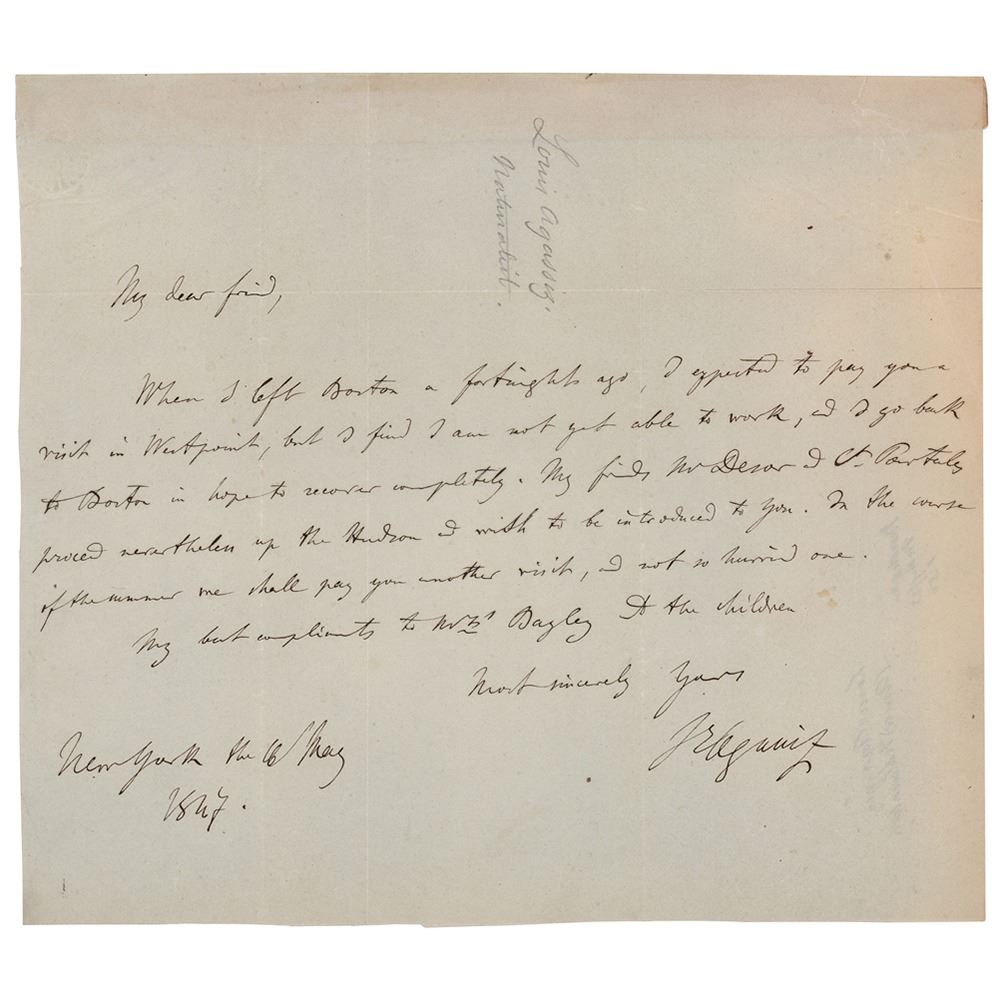 Louis Agassiz.
Naturalist.
My dear friend,
When I left Boston a fortnights ago, I expected to pay you a
visit in Westpoint, but I find I am not yet able to work, and I go back
to Boston in hope to recover completely. My friends Mr Desor and Ct. Pourtales
proceed nevertheless up the Hudson and wish to be introduced to you. In the course
of the summer we shall pay you another visit, and not so hurried one.
My best compliments to Mrs Bagley & to the children
Most sincerely Yours
Ls Agassiz
New York the 6 May
1847.